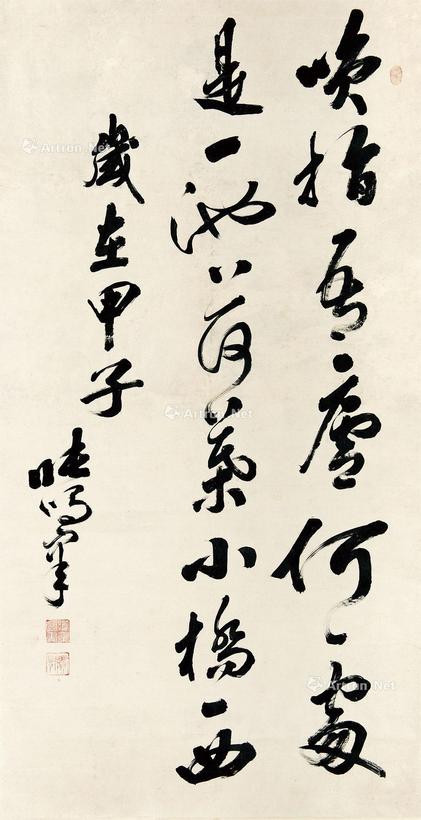 咲指吾廬何處
是一池荷葉小橋西
歲在甲子
Artron.Net
Artron.Net
Artron.Net